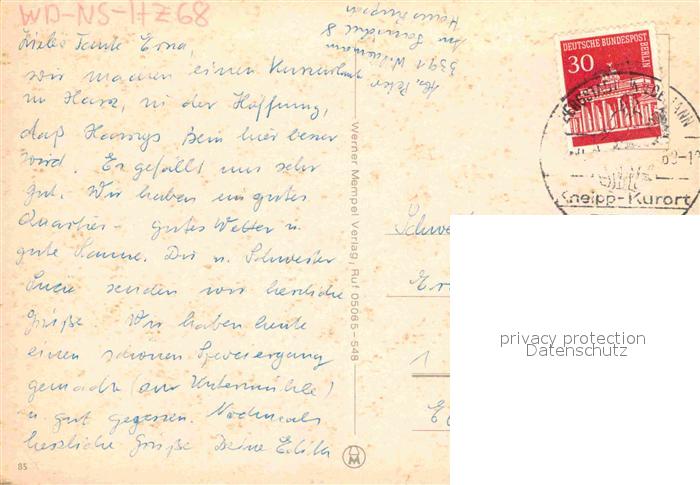 WD-NS-HZ68
Liebe Tante Erna,
wir machen einen Kurzurlaub
im Harz, in der Hoffnung,
daß Bein hier besser
wird. Es gefällt uns sehr
gut. Wir haben ein gutes
Quartier gutes Wetter u.
gute Laune. Dir u. Schwester
senden wir herzliche
Grüße Wir haben heute
einen schönen Spaziergang
gemacht (zur Untermühle)
u. gut gegessen. Nochmals
herzliche Grüße Deine Edith
85
3391 Wildemann
Werner Mempel Verlag, Ruf 05065-548
DEUTSCHE BUNDESPOST
BERLIN
30
Kneipp-Kurort
Schwe
1
privacy protection
Datenschutz